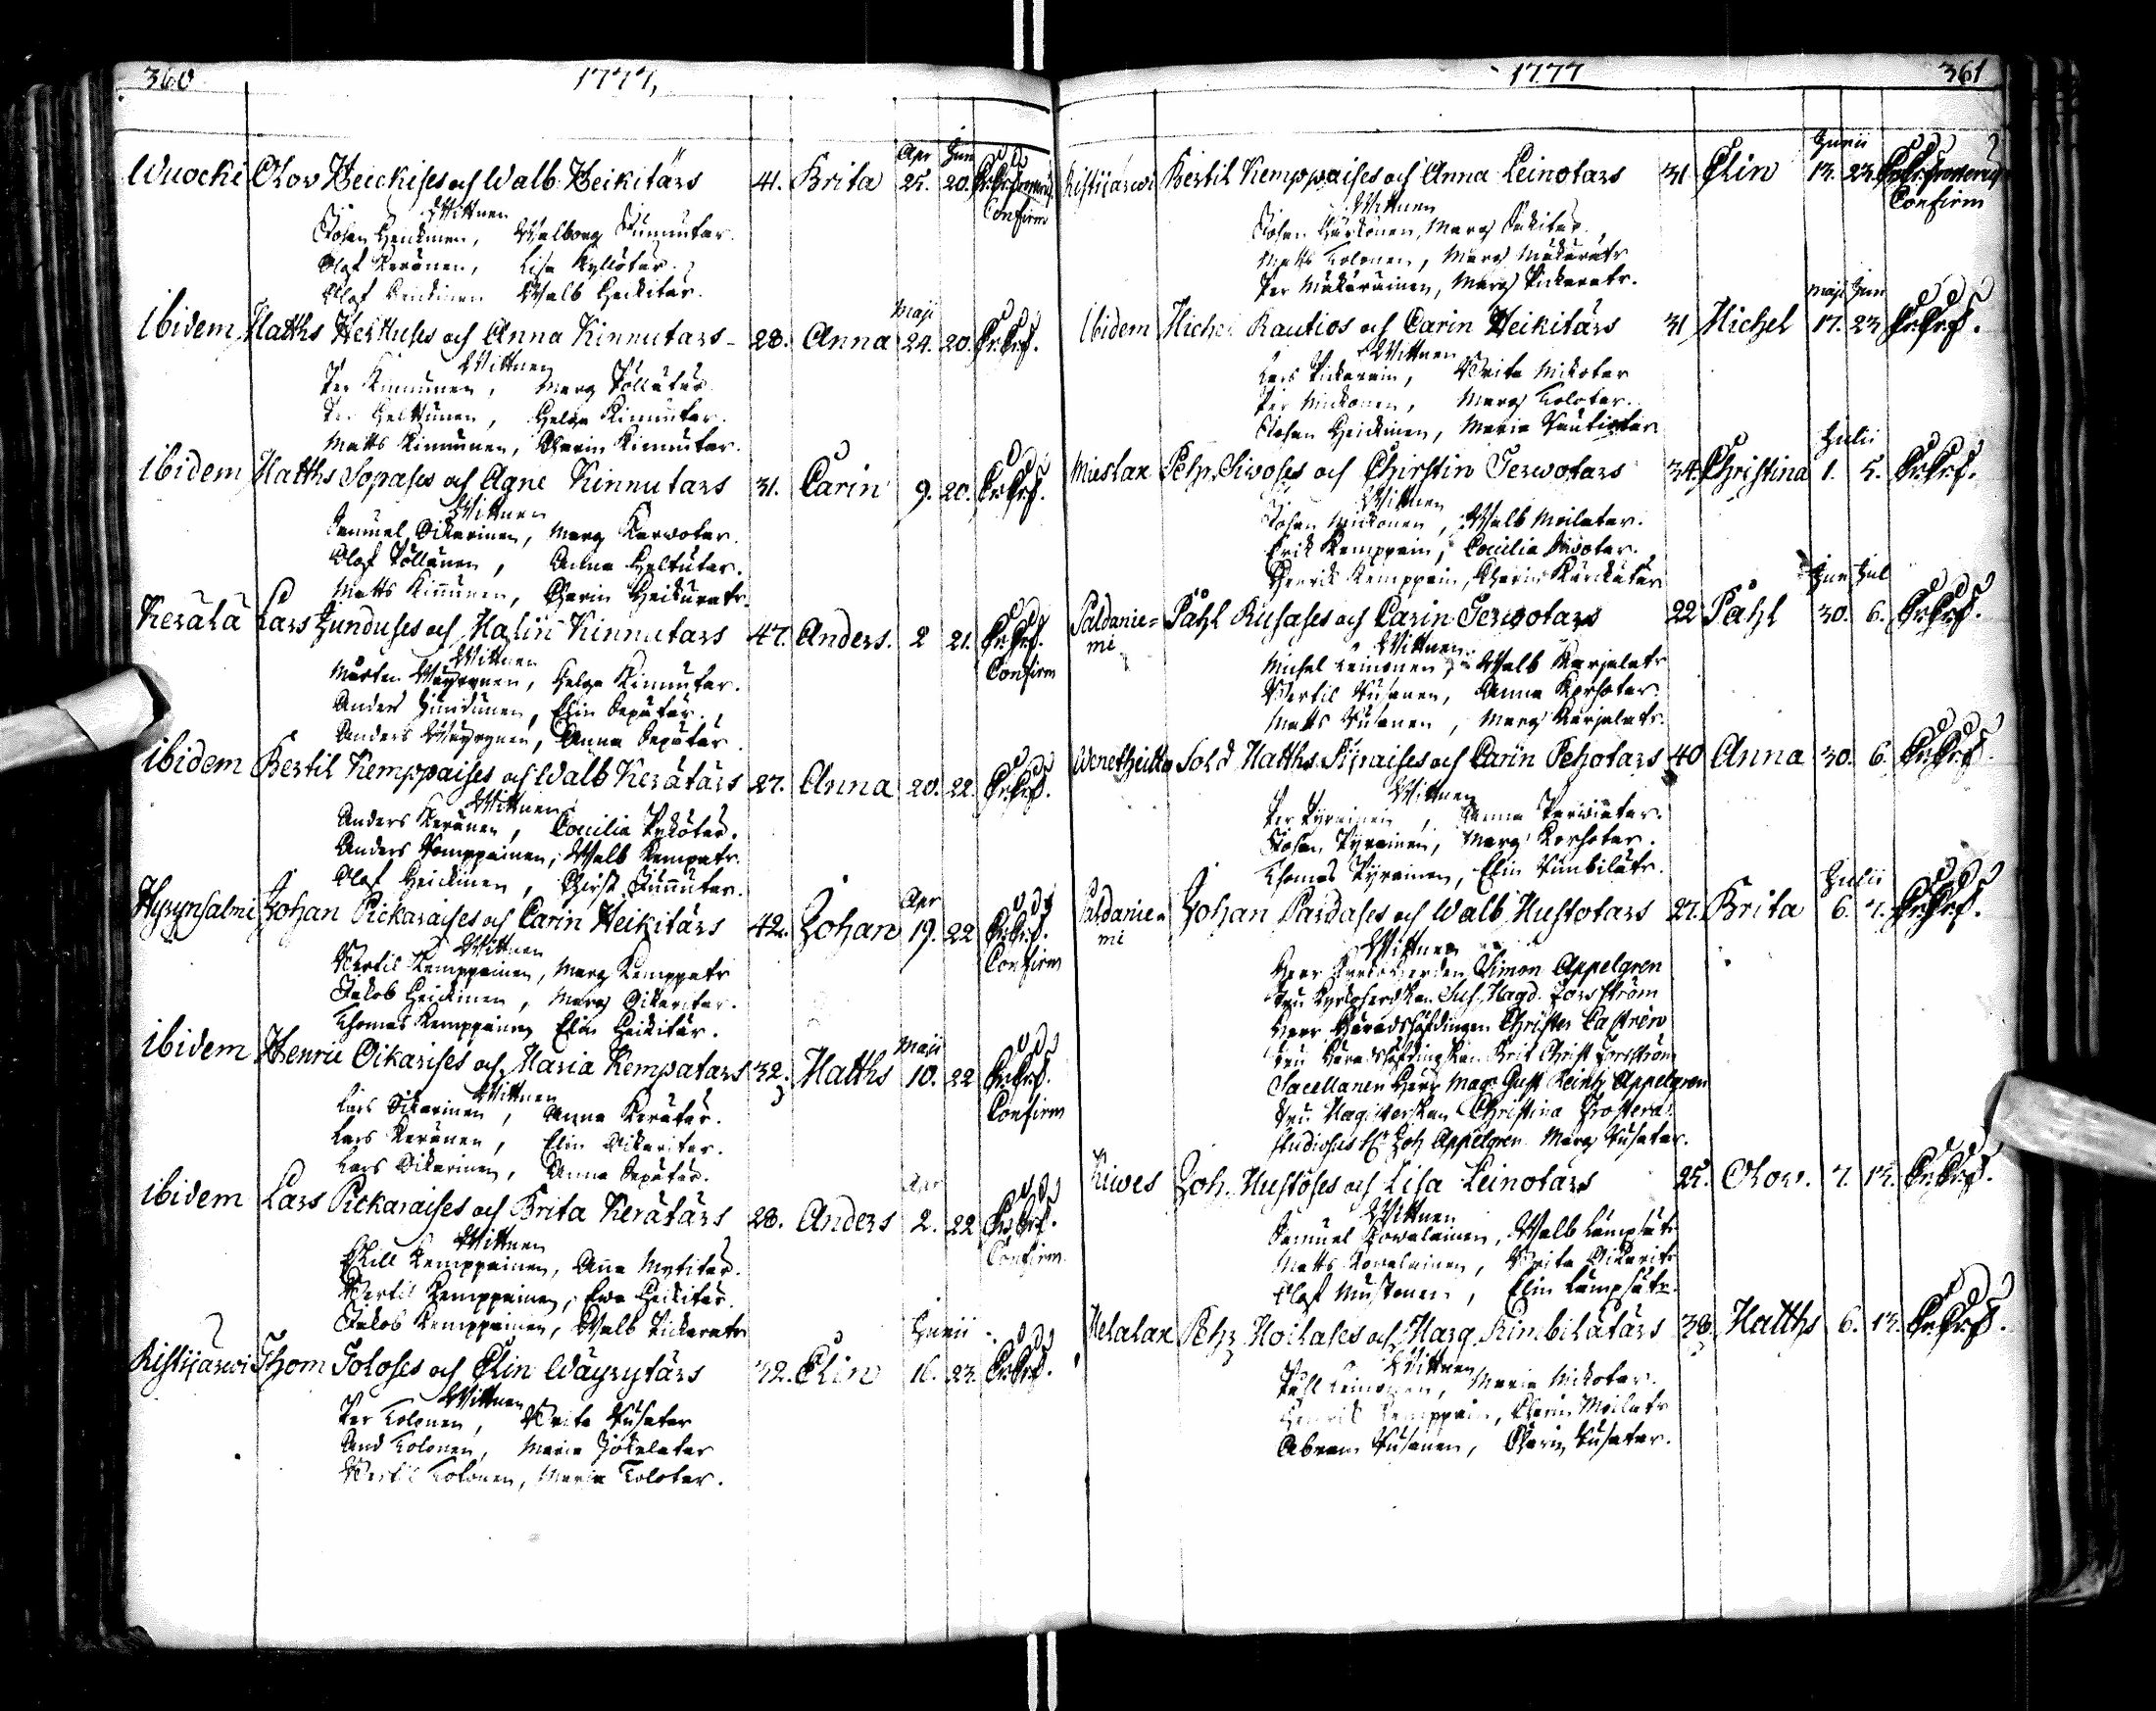 360
1777,
Apr Jun
Wuocki Olov Heickises och Walb: Heikitärs 41. Brita 25. 20.
Confirm
Wittnen
Johan Heickinen, Walborg
Olof Keränen, Lisa Kyllötar.
Olof Heickinen Walb Heickitar.
Maji
Ibidem Matths Herttuses och Anna Kinnutars 28. Anna 24. 20.
Wittnen
Per Kinnunen, Marg Pöllätär
Per Helttunen, Helga Kinnutar.
Matts Kinnunen, Charin Kinnutar.
ibidem Matths Sopases och Agne Kinnutars 31. Carin 9. 20.
Wittnen
Samuel Oikarinen, Marg Karwotar.
Olof Pöllänen, Anna Heltutar.
Matts Kinnunen, Charin Heikuratr.
Kerälä Lars Junduses och Malin Kinnutars 47. Anders. 2 21.
Confirm
Wittnen
Mårten Wäyrynen, Helga Kinnutar.
Anders Jundunen, Elin Sepätär.
Anders Wäyrynen, Anna Sepätär.
ibidem Bertil Kemppaises och Walb Kerätärs 27. Anna 20. 22.
Wittnen
Anders Keränen, Cecilia
Anders Kemppainen, Walb Kempatr.
Olof Heickinen, Christ Junnutar.
Apr
Hyrynsalmi Johan Pickaraises och Carin Heikitärs 42. Johan 19. 22
Confirm
Wittnen
Bertil Kemppainen, Marg Kemppatr
Jakob Heickinen, Marg Oikaritar.
Thomas Kemppainen Elin Heikitär.
Maji
ibidem Henric Oikarises och Maria Kempatars 32. Matths 10. 22
Confirm
Wittnen
Lars Oikarinen, Anna Kerätär.
Lars Keränen, Elin Oikaritar.
Lars Oikarinen, Anna Sepätär.
Apr
ibidem Lars Pickaraises och Brita Kerätärs 28. Anders 2. 22
Confirm.
Wittnen
Kemppainen, Ana Mytitär.
Bertil Kemppainen, Ewa Heikitär.
Jakob Kemppainen, Walb Pickaratr
Junii
Ristijärwi Thom Toloses och Elin Wäyrytärs 32. Elin 16. 23.
Wittnen
Per Tolonen, Brita Rusatar
And Tolonen, Maria Jokelatar
Bertil Tolonen, Maria Tolotar.
1777
361
Junii
Ristijärwi Bertil Kemppaises och Anna Leinotars 31 Elin 13. 23
Confirm
Wittnen
Johan Härkönen, Marg
Matts Tolonen, Marg Mäkärätr
Per Mäkäräinen, Marg Pickaratr.
Maji Jun
Ibidem Michel Rautios och Carin Heikitärs 31 Michel 17. 23
Wittnen
Lars Pickarain, Brita Mickotar
Per Mickonen, Marg Tolotar.
Johan Heickinen, Maria Rautiotar
Julii
Mieslax Pehr Siwoses och Chirstin Terwotars 34. Christina 1. 5.
Wittnen
Johan Mickonen, Walb Moilatar.
Erik Kemppain, Cecilia Siwotar.
Henrik Kemppain, Charin Kärckätär
Jun Jul
Paldanie= Påhl Rusases och Carin Terwotars 22 Påhl 30. 6.
mi
Wittnen
Michel Leinonen, Walb Karjalatr
Bertil Rusanen, Anna Korhotar.
Matts Rusanen, Marg Karjalatr.
Wenetheitto Sold Matths Pyraises och Carin Pehotars 40 Anna 30. 6.
Wittnen
Per Pyrainen, Anna
Johan Pyrainen, Marg Korhotar.
Thomas Pyrainen, Elin Rimbilätr.
Julii
Paldanie= Johan Pardases och Walb: Mustotars 27. Brita 6. 7.
mi
Wittnen
Herr Kyrkoherden Simon Appelgren
Fru Kyrkoherdskan Sus. Magd. Forsström
Herr Häradshöfdingen Christer Castrén
Fru Häradshöfdingskan Brit Christ Forsström
Sacellanen Herr Mag. Gust Reinh Appelgren
Fru Magisterskan Christina Frosterus
Studiosus Joh Appelgren Marg Rusatar.
Kiwes Joh. Mustoses och Lisa Leinotars 25. Olov. 7. 13.
Wittnen
Samuel Kowalainen, Walb Lämpsätr
Matts Kowalainen, Brita Oikaritr
Olof Mustonen, Elin Lämpsätr.
Melalax Pehr Moilases och Marg Rimbilätärs 38. Matths 6. 13.
Wittnen
Påhl Leinonen, Maria Mickotar.
Henrik Kemppain, Charin Moilatr
Abram Rusanen, Charin Rusatar.